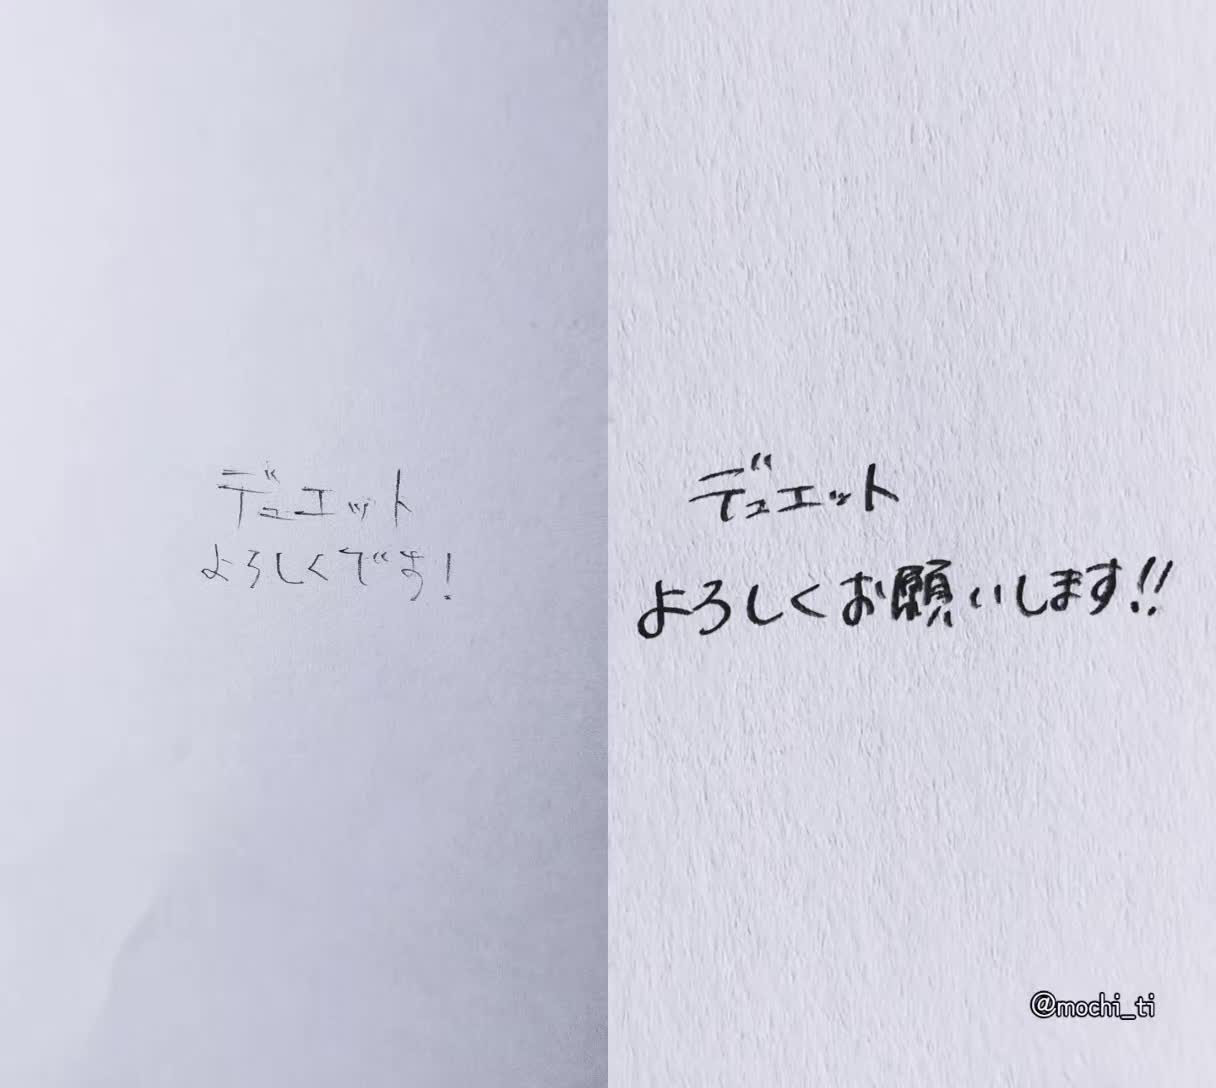 デュエット
よろしくです!
デュエット
よろしくお願いします!!
@mochi_ti